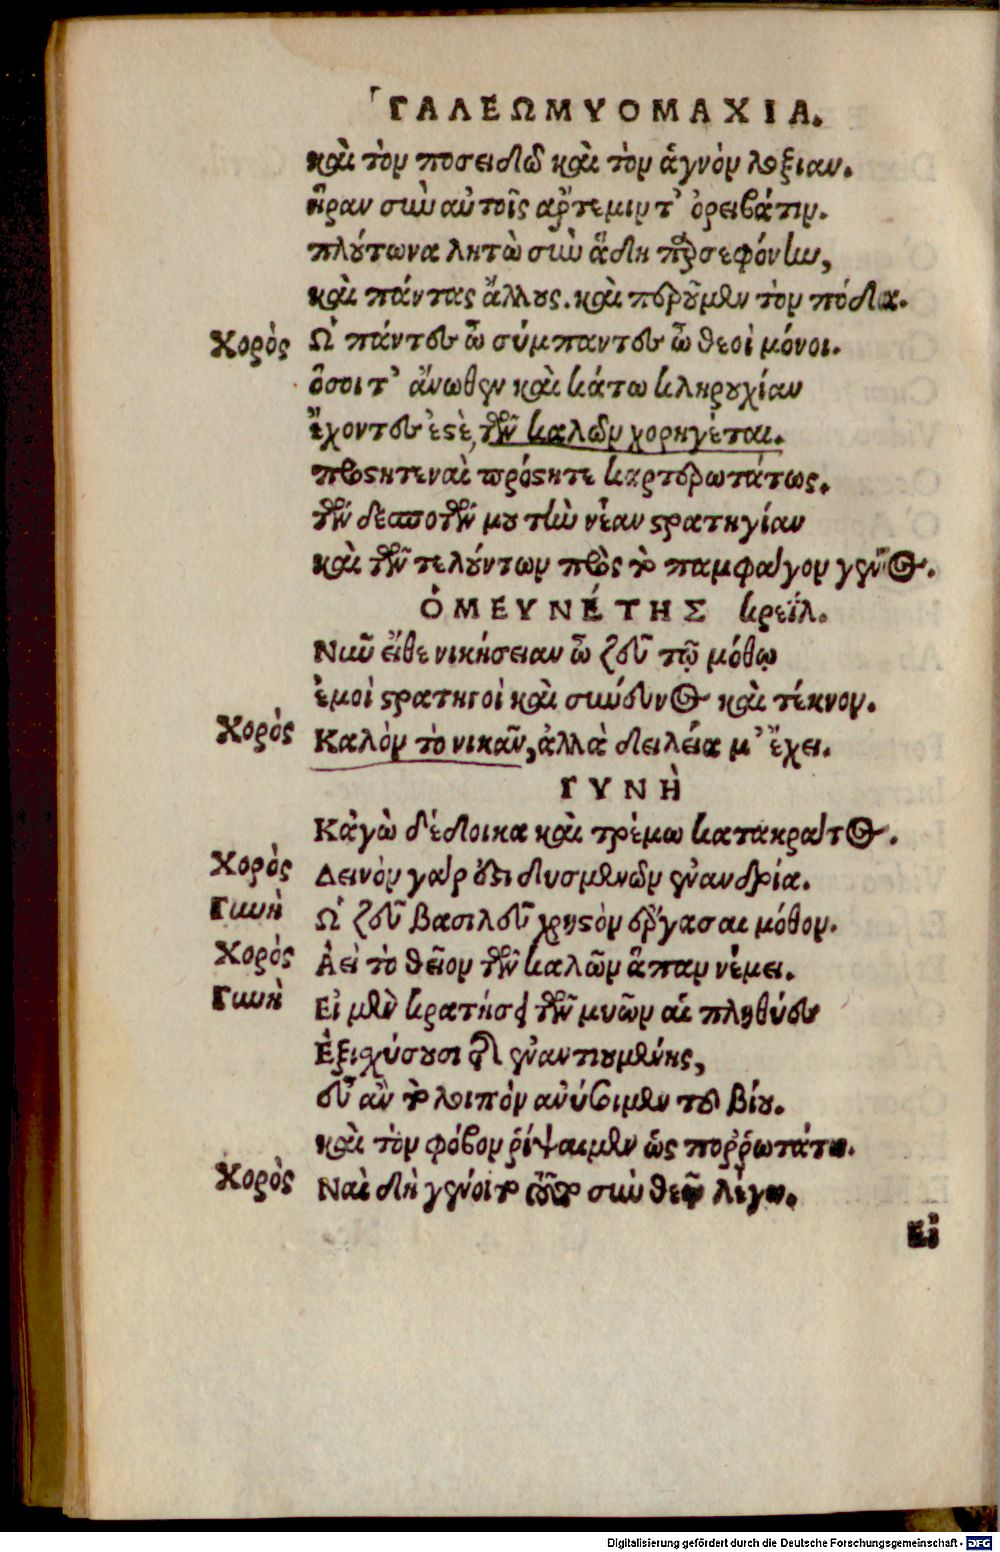 ΓΑΛΕΩΜΥΟΜΑΧΙΑ.
καὶ τὸν ποσειδῶ καὶ τὸν ἁγνὸν λοξίαν.
ἥραν σὺν αὐτοῖς αῤ́τεμιν τ' ὀρειβάτιν.
πλούτωνα λητὼ σὺν ἅδη προσεφόνην,
καὶ πάντας ἄλλους. καὶ περοῦμεν τὸν πόδα.
Χορὸς Ὦ πάντες ὦ σύμπαντες ὦ θεοὶ μόνοι.
ὅσοι τ' ἄνωθεν καὶ κάτω κληρουχίαν
ἔχοντες ἐστὲ, τῶν καλῶν χορηγέται.
πρόστητε ναὶ πρόστητε καρτερωτάτως.
τῶν δεσποτῶν μου τὴν νέαν στρατηγίαν
καὶ τῶν τελούντων πρὸς τὸ παμφάγον γένος.
ὉΜΕΥΝΕΤΗΣ κρεΐλ.
Νῦν εἴθε νικήσειαν ὦ ζεῦ τῷ μόθῳ
ἐμοὶ στρατηγοὶ καὶ σύνευνος καὶ τέκνον.
Χορὸς Καλὸν τὸ νικᾶν, ἀλλὰ δειλεία μ' ἔχει.
ΓΥΝῊ
Κἀγὼ δέδοικα καὶ τρέμω κατακράτος.
Χορὸς Δεινὸν γάρ ἐστι δυσμενῶν ἐνανδρία.
Γυνὴ Ὦ ζεῦ βασιλεῦ χρηστὸν ἔργασαι μόθον.
Χορὸς Ἀεὶ τὸ θεῖον τῶν καλῶν ἅπαν νέμει.
Γυνὴ Εἰ μὲν κρατήσει τῶν μυῶν αἱ πληθύες
Ἐξισχύσουσι τῆς ἐναντιουμένης,
εὖ ἂν τὸ λοιπὸν ἀνύσοιμεν τοῦ βίου.
καὶ τὸν φόβον ῥίψαιμεν ὡς πορῤῥωτάτω.
Χορὸς Ναὶ δὴ γένοιτο τοῦτο σὺν θεῷ λέγω.
Εἰ
Digitalisierung gefördert durch die Deutsche Forschungsgemeinschaft - DFG